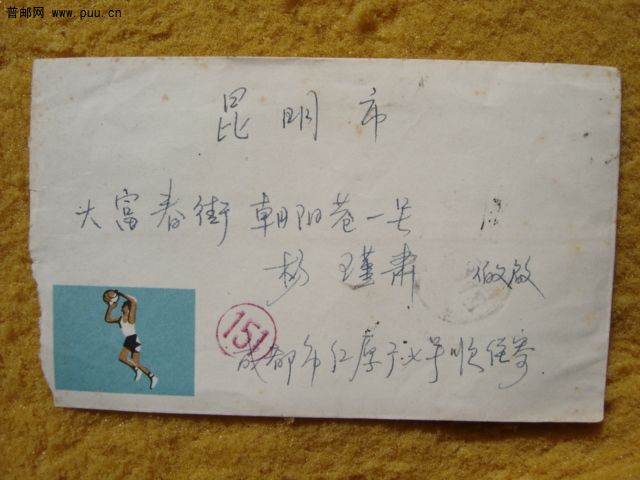 普邮网 www.puu.cn
昆明市
大富春街朝阳巷一号
杨瑾肃 收启
151
成都市红